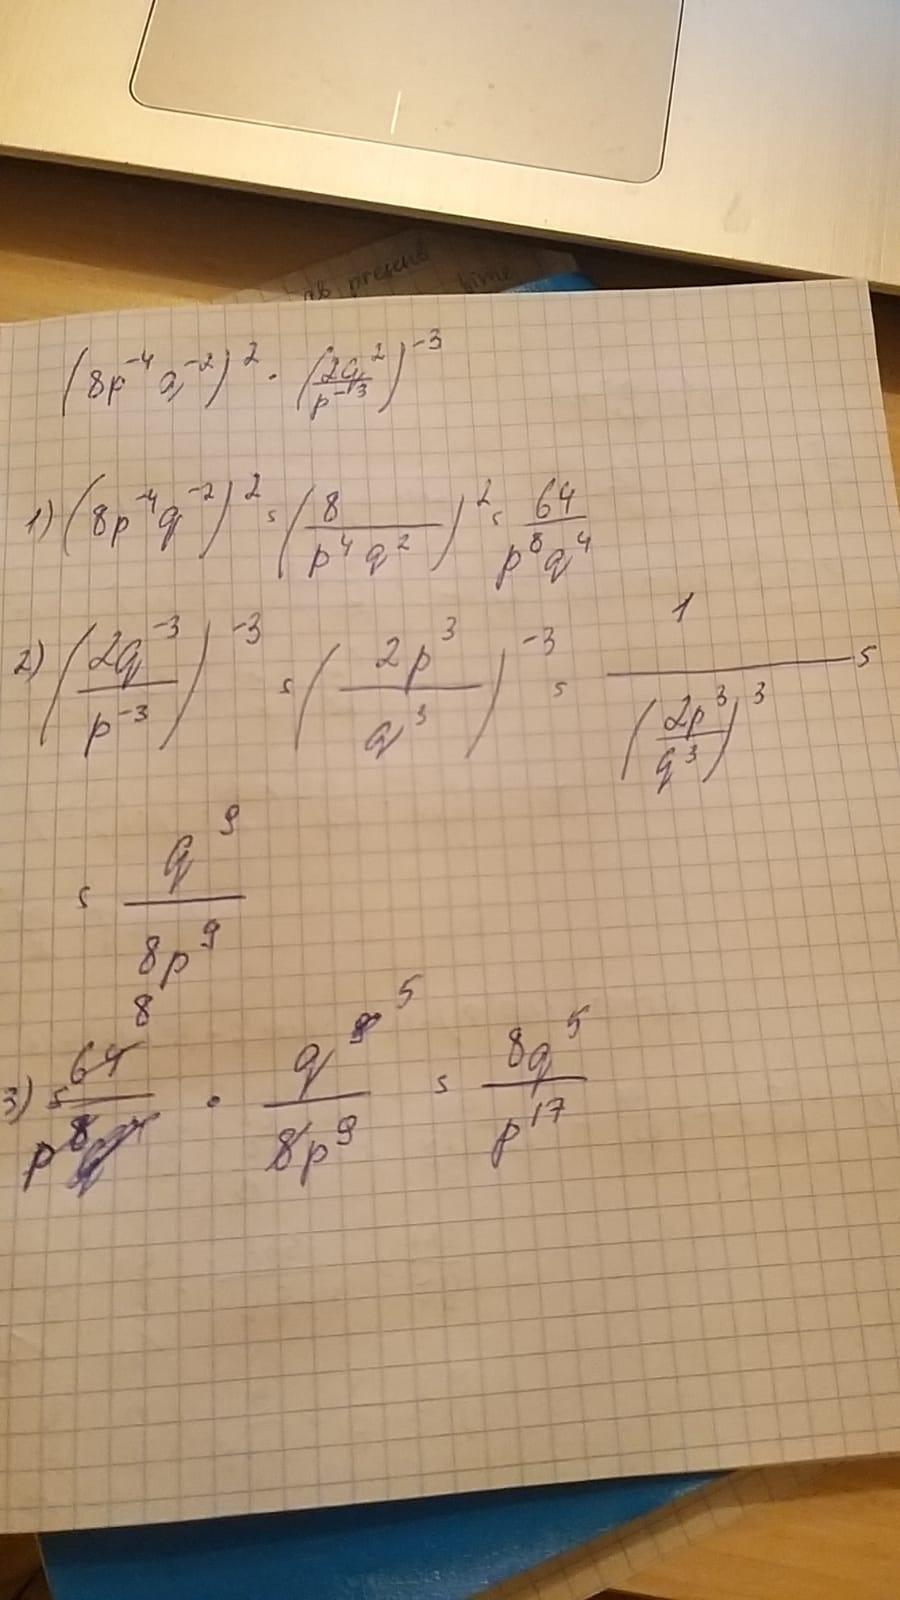 as present
time
(8p^-4 q^-2)^2 · (2q^2/p^-3)^-3
1) (8p^-4 q^-2)^2 = (8/(p^4 q^2))^2 = 64/(p^8 q^4)
2) (2q^-3/p^-3)^-3 = (2p^3/q^3)^-3 = 1/((2p^3/q^3)^3) =
= q^9/(8p^9)
8 5
3) = 64/(p^8 q^4) · q^9/(8p^9) = 8q^5/p^17